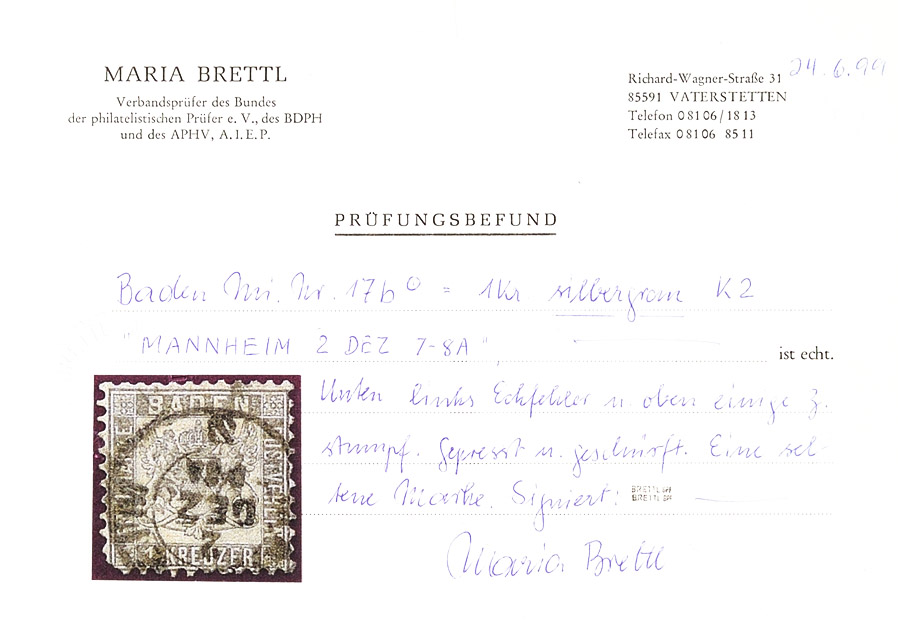 MARIA BRETTL
Verbandsprüfer des Bundes
der philatelistischen Prüfer e. V., des BDPH
und des APHV, A.I.E.P.
24.6.99
Richard-Wagner-Straße 31
85591 VATERSTETTEN
Telefon 08106/1813
Telefax 08106 8511
PRÜFUNGSBEFUND
Baden Mi. Nr. 17b ⊙ = 1Kr silbergrau K2
"MANNHEIM 2 DEZ 7-8A" ist echt.
Unten links Eckfehler u. oben einige Z.
stumpf. Gepresst u. geschürft. Eine sel-
tene Marke. Signiert: BRETTL
BRETTL
Maria Brettl
BADEN
POSTVEREIN
1 KREUZER
2
DEZ